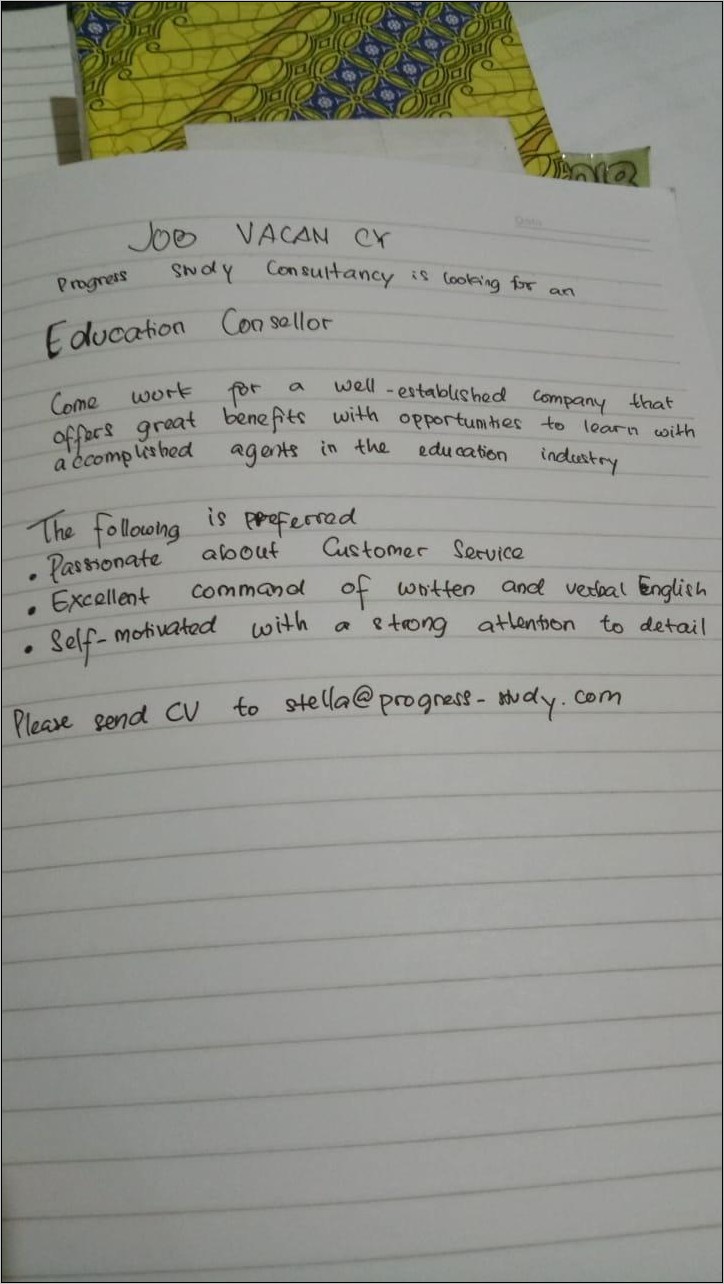 JOB VACANCY
Progress Study Consultancy is looking for an
Education Consellor
Come work for a well-established company that
offers great benefits with opportunities to learn with
accomplished agents in the education industry
The following is preferred
• Passionate about Customer Service
• Excellent command of written and verbal English
• Self-motivated with a strong attention to detail
Please send CV to stella@progress-study.com